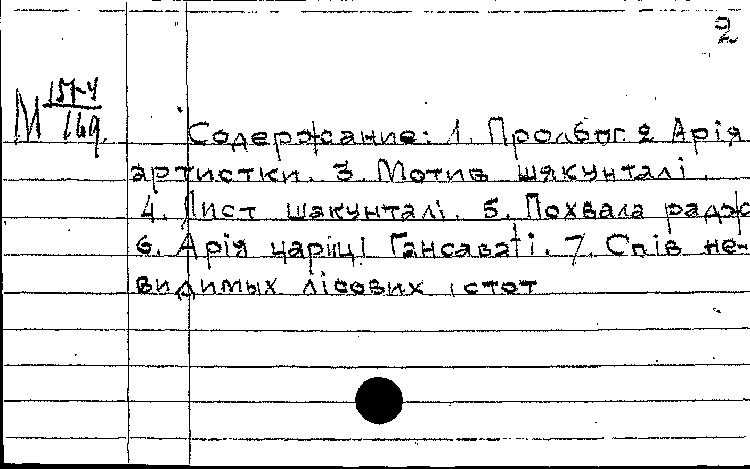 2
М 157-4
169.
Содержание: 1. Пролог. 2 Арія
артистки. 3. Мотив шакунталі.
4. Лист шакунталі. 5. Похвала радж
6. Арія цариці Гансаваті. 7. Спів не-
видимых лісових істот